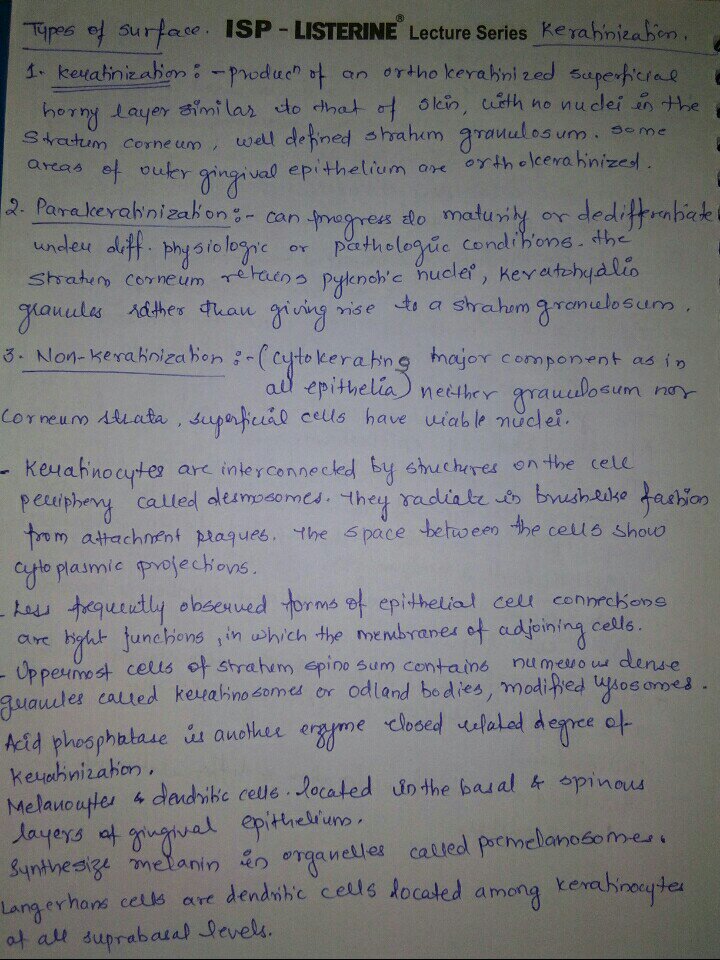 Types of surface. ISP - LISTERINE® Lecture Series Keratinization.
1. Keratinization :- producⁿ of an orthokeratinized superficial
horny layer similar to that of skin, with no nuclei in the
Stratum corneum, well defined stratum granulosum. some
areas of outer gingival epithelium are orthokeratinized.
2. Parakeratinization :- can progress to maturity or dedifferentiate
under diff. physiologic or pathologic conditions. the
stratum corneum retains pyknotic nuclei, keratohyalin
granules rather than giving rise to a stratum granulosum.
3. Non-keratinization :- (cytokeratins major component as in
all epithelia) neither granulosum nor
corneum strata, superficial cells have viable nuclei.
- Keratinocytes are interconnected by structures on the cell
periphery called desmosomes. They radiate in brushlike fashion
from attachment plaques. The space between the cells show
cytoplasmic projections.
- Less frequently observed forms of epithelial cell connections
are tight junctions, in which the membranes of adjoining cells.
- Uppermost cells of stratum spinosum contains numerous dense
granules called keratinosomes or odland bodies, modified lysosomes.
Acid phosphatase is another enzyme closed related degree of
Keratinization.
Melanocytes & dendritic cells. located in the basal & spinous
layers of gingival epithelium.
Synthesize melanin in organelles called premelanosomes.
Langerhans cells are dendritic cells located among keratinocytes
at all suprabasal levels.